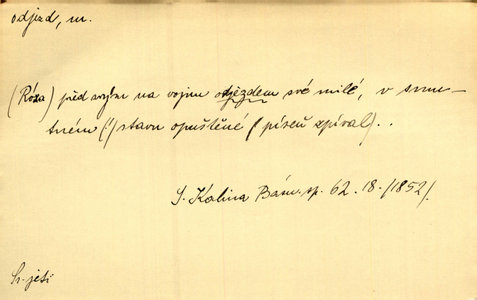 odjezd, m.
(Róza) před svým na vojnu odjezdem své milé, v smu-
tném (!) stavu opuštěné (píseň zpíval)..
J. Kalina Bás. sp. 62. 18. (1852).